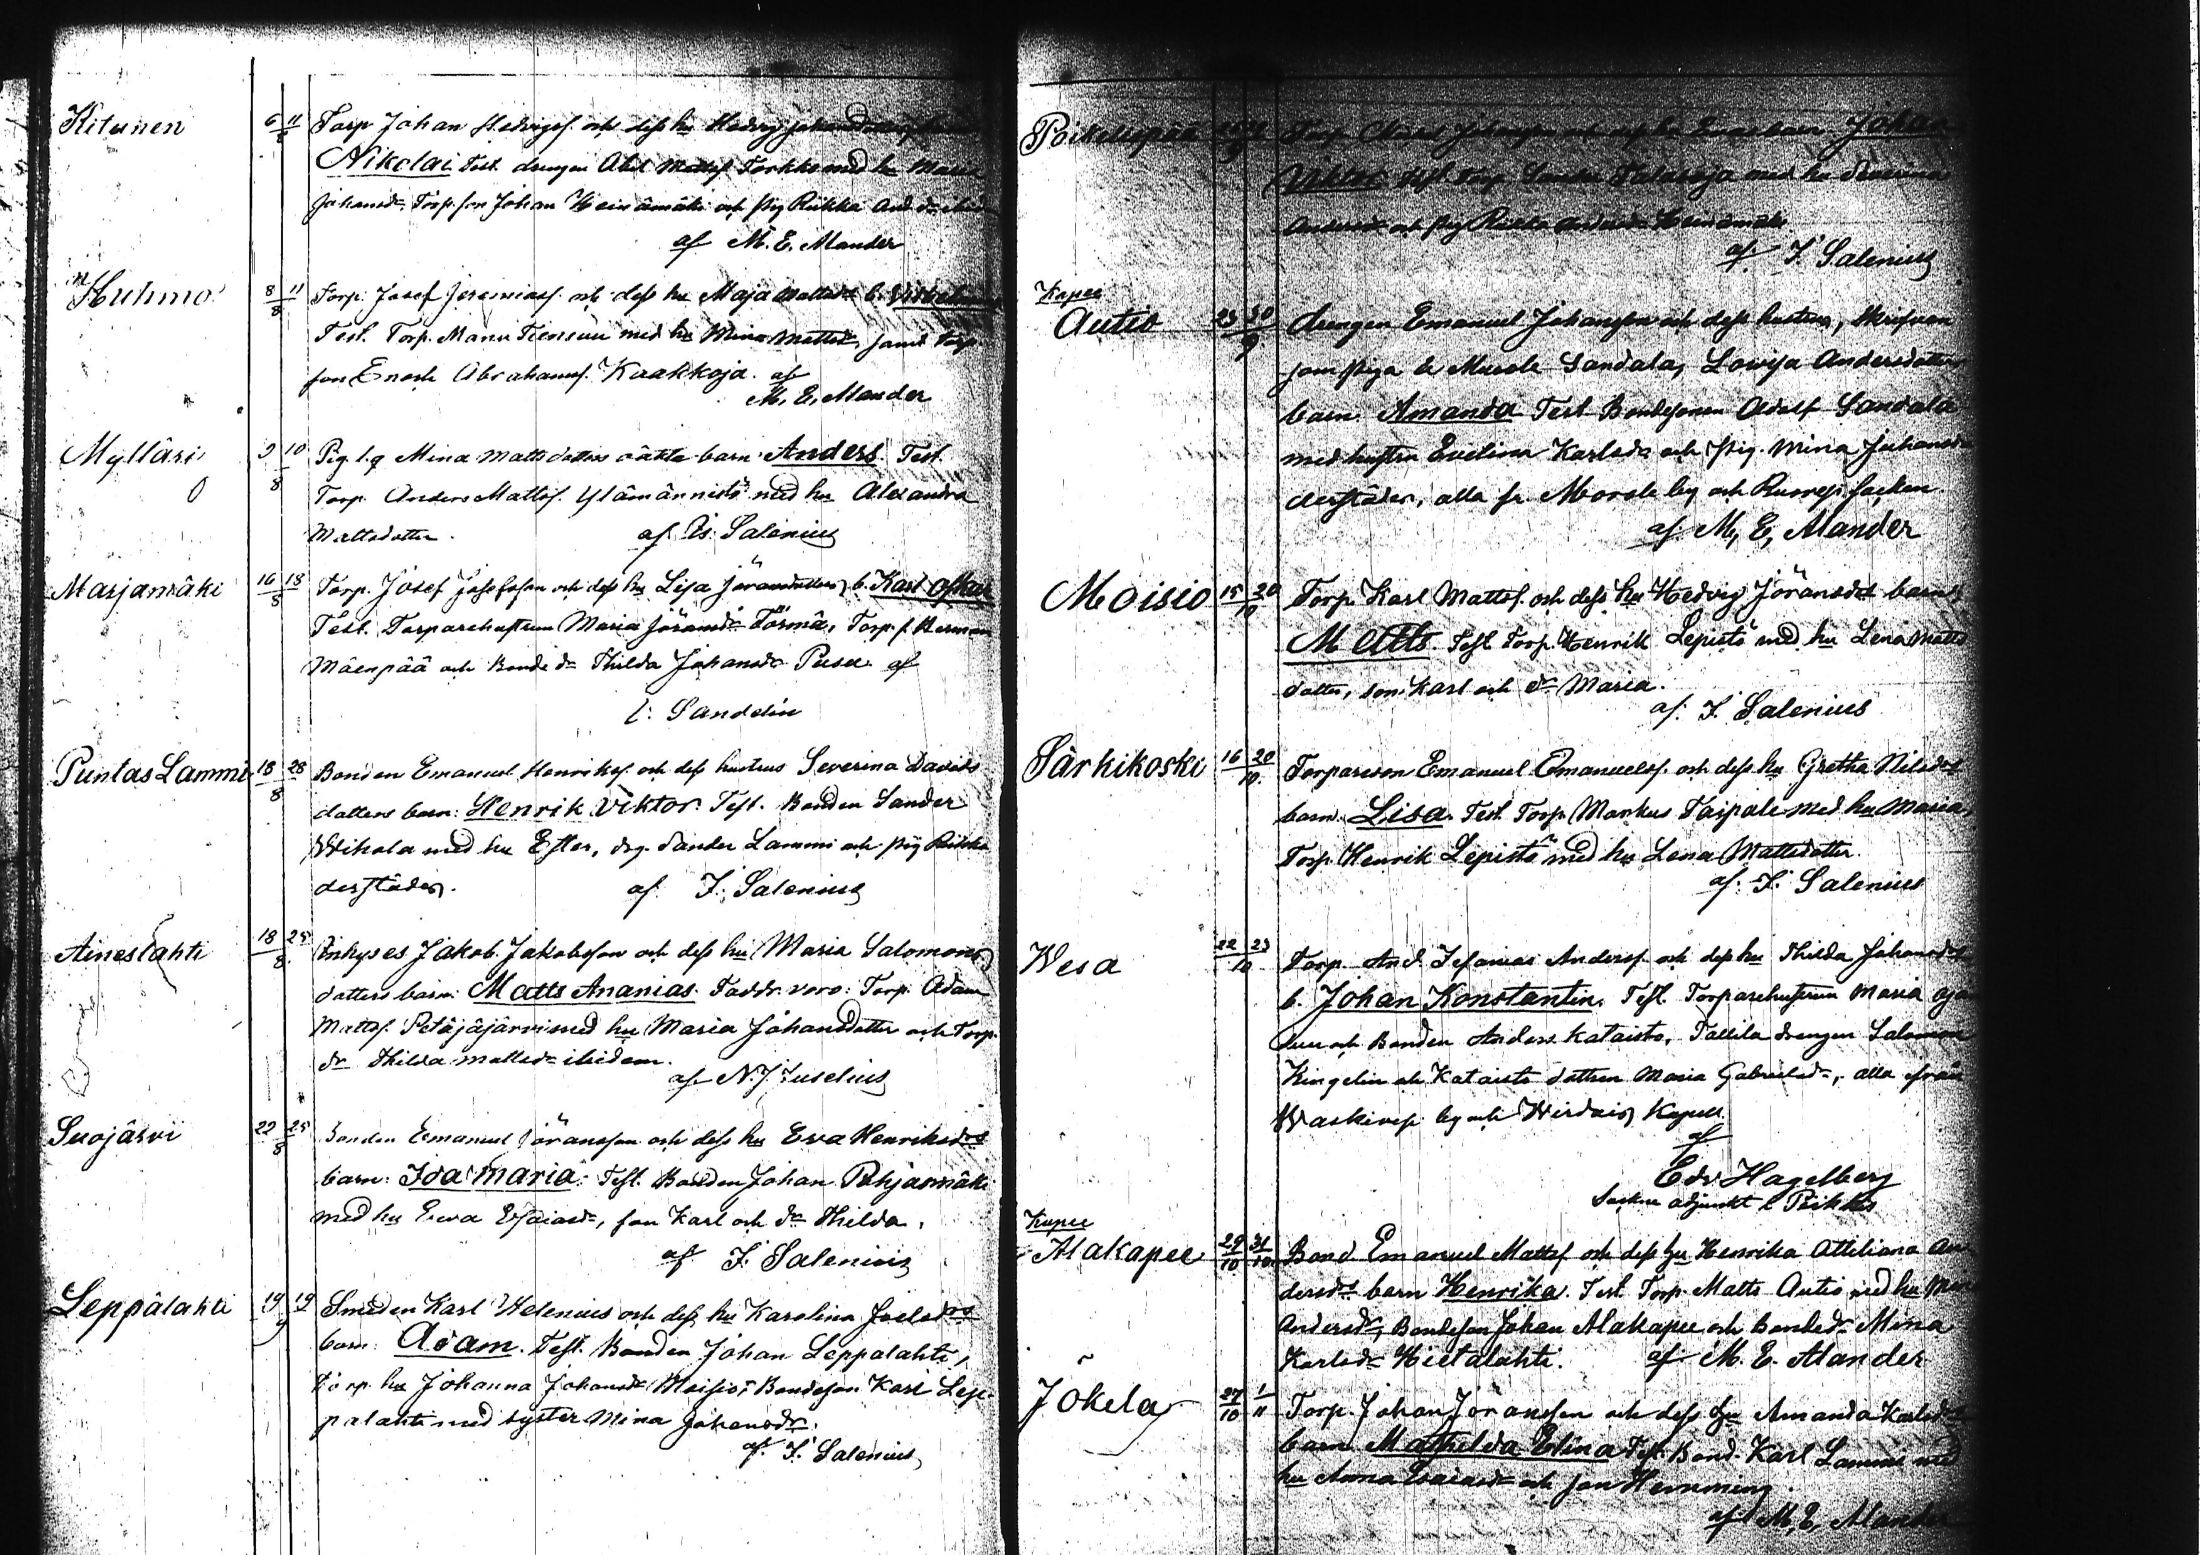 Kitunen 6 11 8 Torp Johan Hedvigsf. och dess hu Hedvig Johansdotters
Nikolai Test. drengen Abel Mattsf. Torkko med hu Maria
Johansdr, Torp. son Johan Heinämäki och pig Riikka And. dr
af M. E. Alander
Huhmo 8 11 8 Torp. Josef Jeremiasf. och dess hu Maja Mattsdrs b.
Test. Torp. Manu Tiensuu med hu Mina Mattsdr, samt Torp.
son Enoch Abrahamsf. Kaakkoja. af
M. E. Alander
Mylläri 9 10 8 Pig. l.q Mina Mattsdotters oäkta barn: Anders. Test.
Torp. Anders Mattsf. Ylämännistö med hu Alexandra
Mattsdotter. af Is. Salenius
Marjamäki 16 18 8 Torp. Josef Josefsson och dess hu Lisa Jöransdotters b. Karl Oskar
Test. Torparehustrun Maria Jöransdr Törmä, Torp. s. Herman
Mäenpää och Bonde dr Thilda Johansdr Pusu af
Sandelin
Puntas Lammi 18 28 8 Bonden Emanuel Henriksf. och dess hustrus Severina Davids
dotters barn: Henrik Viktor. Test. Bonden Sander
Wihola med hu Ester, drg. Sander Lammi och pig Riikka
derstädes. af I. Salenius
Aineslahti 18 25 8 Inhyses Jakob Jakobsson och dess hu Maria Salomons
dotters barn: Matts Ananias. Faddr. voro: Torp. Adam
Mattsf. Petäjäjärvi med hu Maria Johansdotter och Torp.
dr Thilda Mattsdr ibidem.
af N. J. Juselius
Suojärvi 22 25 8 Bonden Emanuel Jöransson och dess hu Eva Henriksdrs
barn: Ida Maria. Test. Bonden Johan Pohjasmäki
med hu Eeva Esaiasdr, son Karl och dr Thilda.
af I. Salenius
Leppälahti 19 19 9 Smeden Karl Helenius och dess hu Karolina Joelsdrs
barn: Adam. Test. Bonden Johan Leppälahti,
Torp. hu Johanna Johansdr Moisio, Bondeson Karl Lep-
palahti med syster Mina Johansdr.
af I. Salenius
Poikelispää Johan
Viktor. Test. Torp. Sander med hu Severina
Andersdr och pig Riikka Andersdr Heinämäki
af I. Salenius
Kapee
Autio 23 30 9 drengen Emanuel Johansson och dess hustru,
som piga Sandala, Lovisa Andersdotters
barn. Amanda Test Bondesonen Adolf Sandala
med hustru Evelina Karlsdr och pig. Mina Johansdr
derstädes, alla fr. by och socken.
af M, E, Alander
Moisio 15 20 10 Torp Karl Mattsf. och dess hu Hedvig Jöransdrs barn
Matts. Test Torp. Henrik Lepistö med hu Lena Matts
dotter, son Karl och dr Maria.
af I. Salenius
Särkikoski 16 20 10 Torpareson Emanuel Emanuelsf. och dess hu Gretha Nilsdrs
barn. Lisa. Test. Torp. Markus Taipale med hu Maria,
Torp. Henrik Lepistö med hu Lena Mattsdotter.
af. I. Salenius
Wesa 22 23 10 Torp. And. Anderss. och dess hu Thilda Johansdrs
b. Johan Konstantin. Test. Torparehustrun Maria
och Bonden Anders Kataisto, drengen Salomon
Kingelin och Kataisto dottren Maria Gabrielsdr, alla från
Waskivesi by och Wirdois Kapell.
af
Edv. Hagelberg
Socken adjunkt
Kapee
Alakapee 29 10 31 10 Bond. Emanuel Mattsf och dess hu Henrika Attiliana An
dersdrs barn Henrika. Test Torp. Matts Autio med hu
Andersdr, Bondeson Johan Alakapee och bondedr Mina
Karlsdr Hietalahti. af M. E. Alander
Jokela 27 10 1 11 Torp. Johan Jöransson och dess hu Amanda Karlsdrs
barn Mathilda Elina Test. Bond. Karl Lammi med
hu Anna Esaiasdr och son Hemming.
af M, E, Alander